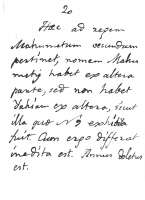 20
Haec ad regem
Mahumetum secundum
pertinet, nomen Mahu
metis habet ex altera
parte, sed non habet
Vahian ex altera, sicut
illa quae Nº 9 exhibita
fuit. Cum ergo differat
inedita est. Annus deletus
est.